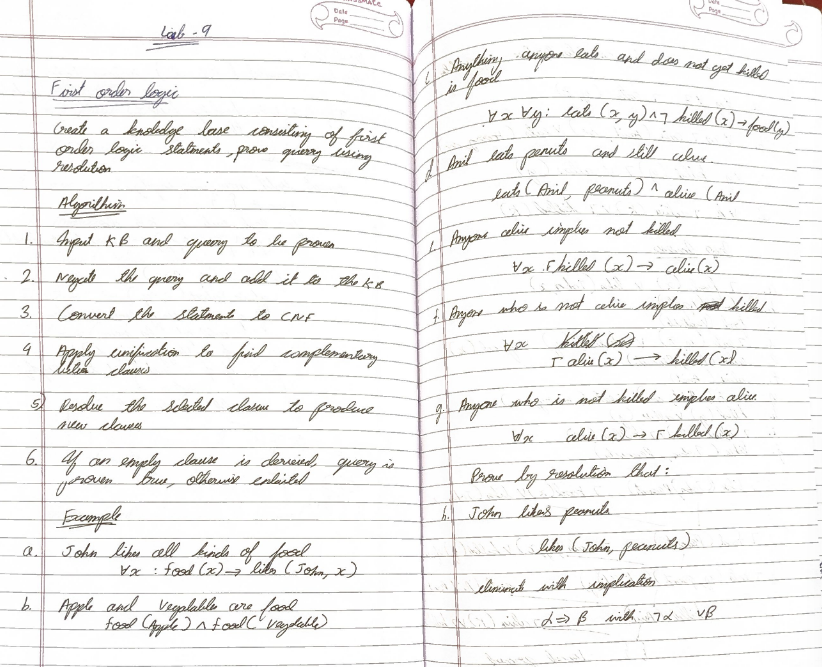 Lab - 9
Date
Page
First order logic
Create a knoledge base consisting of first
order logic statements, prove querry using
resolution
Algorithm
1. Input KB and querry to be proven
2. Negate the query and add it to the KB
3. Convert the statements to CNF
4 Apply unification to find complementary
clauses
5) Resolve the selected clause to produce
new clauses
6. If an empty clause is derieved, query is
proven true, otherwise entailed
Example
a. John likes all kinds of food
∀x : food (x) → likes (John, x)
b. Apple and Vegetables are food
food (Apple) ∧ food( Vegetable)
Date
Page
c. Anything anyone eats and does not get killed
is food
∀x ∀y: eats (x, y) ∧ ¬ killed (x) → food(y)
d. Anil eats penuts and still alive.
eats ( Anil, peanuts) ∧ alive (Anil
Anyone alive implies not killed
∀x ┌ killed (x) → alive(x)
f. Anyone who is not alive implies not killed
∀x killed (x)
┌ alive (x) → killed (x)
g. Anyone who is not killed implies alive
∀x alive (x) → ┌ killed (x)
Prove by resolution that :
h. John likes peanuts
likes (John, peanuts)
eliminate with implication
α ⇒ β with ¬α ∨β